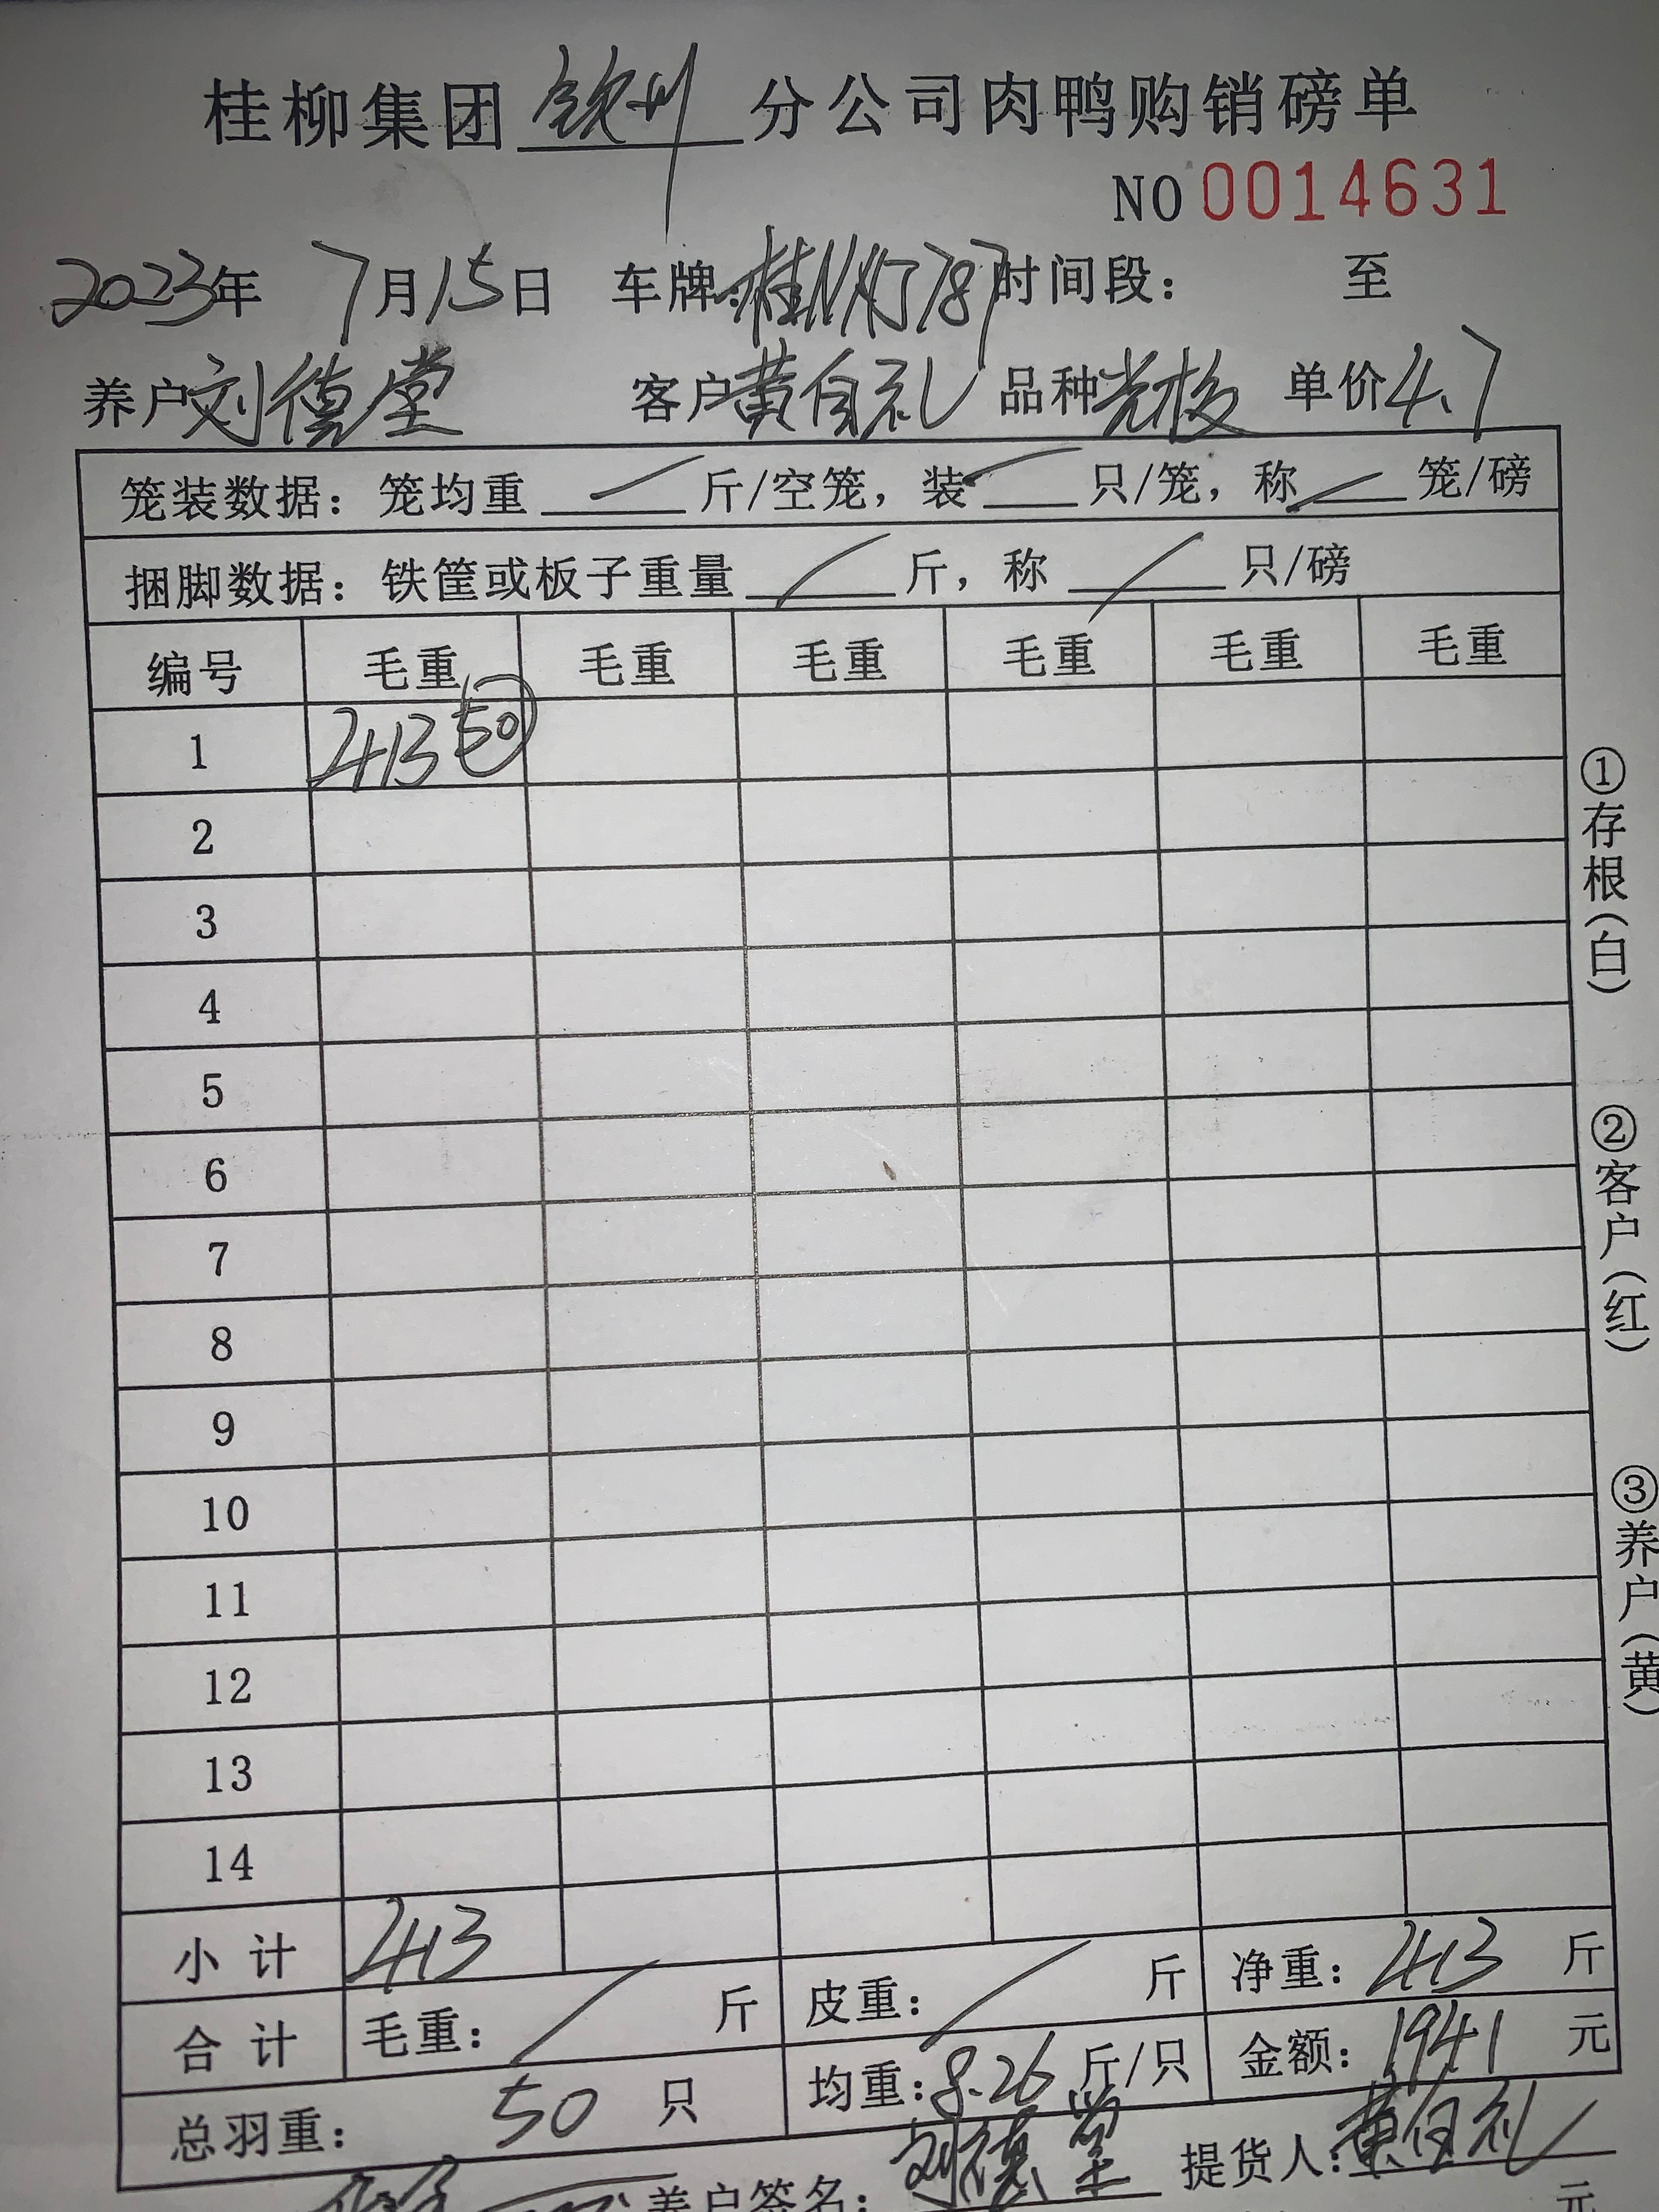 桂柳集团钦州分公司肉鸭购销磅单
NO 0014631
2023年 7月15日 车牌:桂N 787 时间段: 至
养户刘德堂 客户黄自礼 品种 单价4.7
笼装数据:笼均重 / 斤/空笼,装 / 只/笼,称 / 笼/磅
捆脚数据:铁筐或板子重量 / 斤,称 / 只/磅
编号 毛重 毛重 毛重 毛重 毛重 毛重
1 413 50
2
3
4
5
6
7
8
9
10
11
12
13
14
小计 413
合计 毛重: / 斤 皮重: / 斤 净重:413 斤
总羽重: 50 只 均重:8.26 斤/只 金额:1941 元
养户签名:刘德堂 提货人:黄自礼
元
①存根(白)
②客户(红)
③养户(黄)